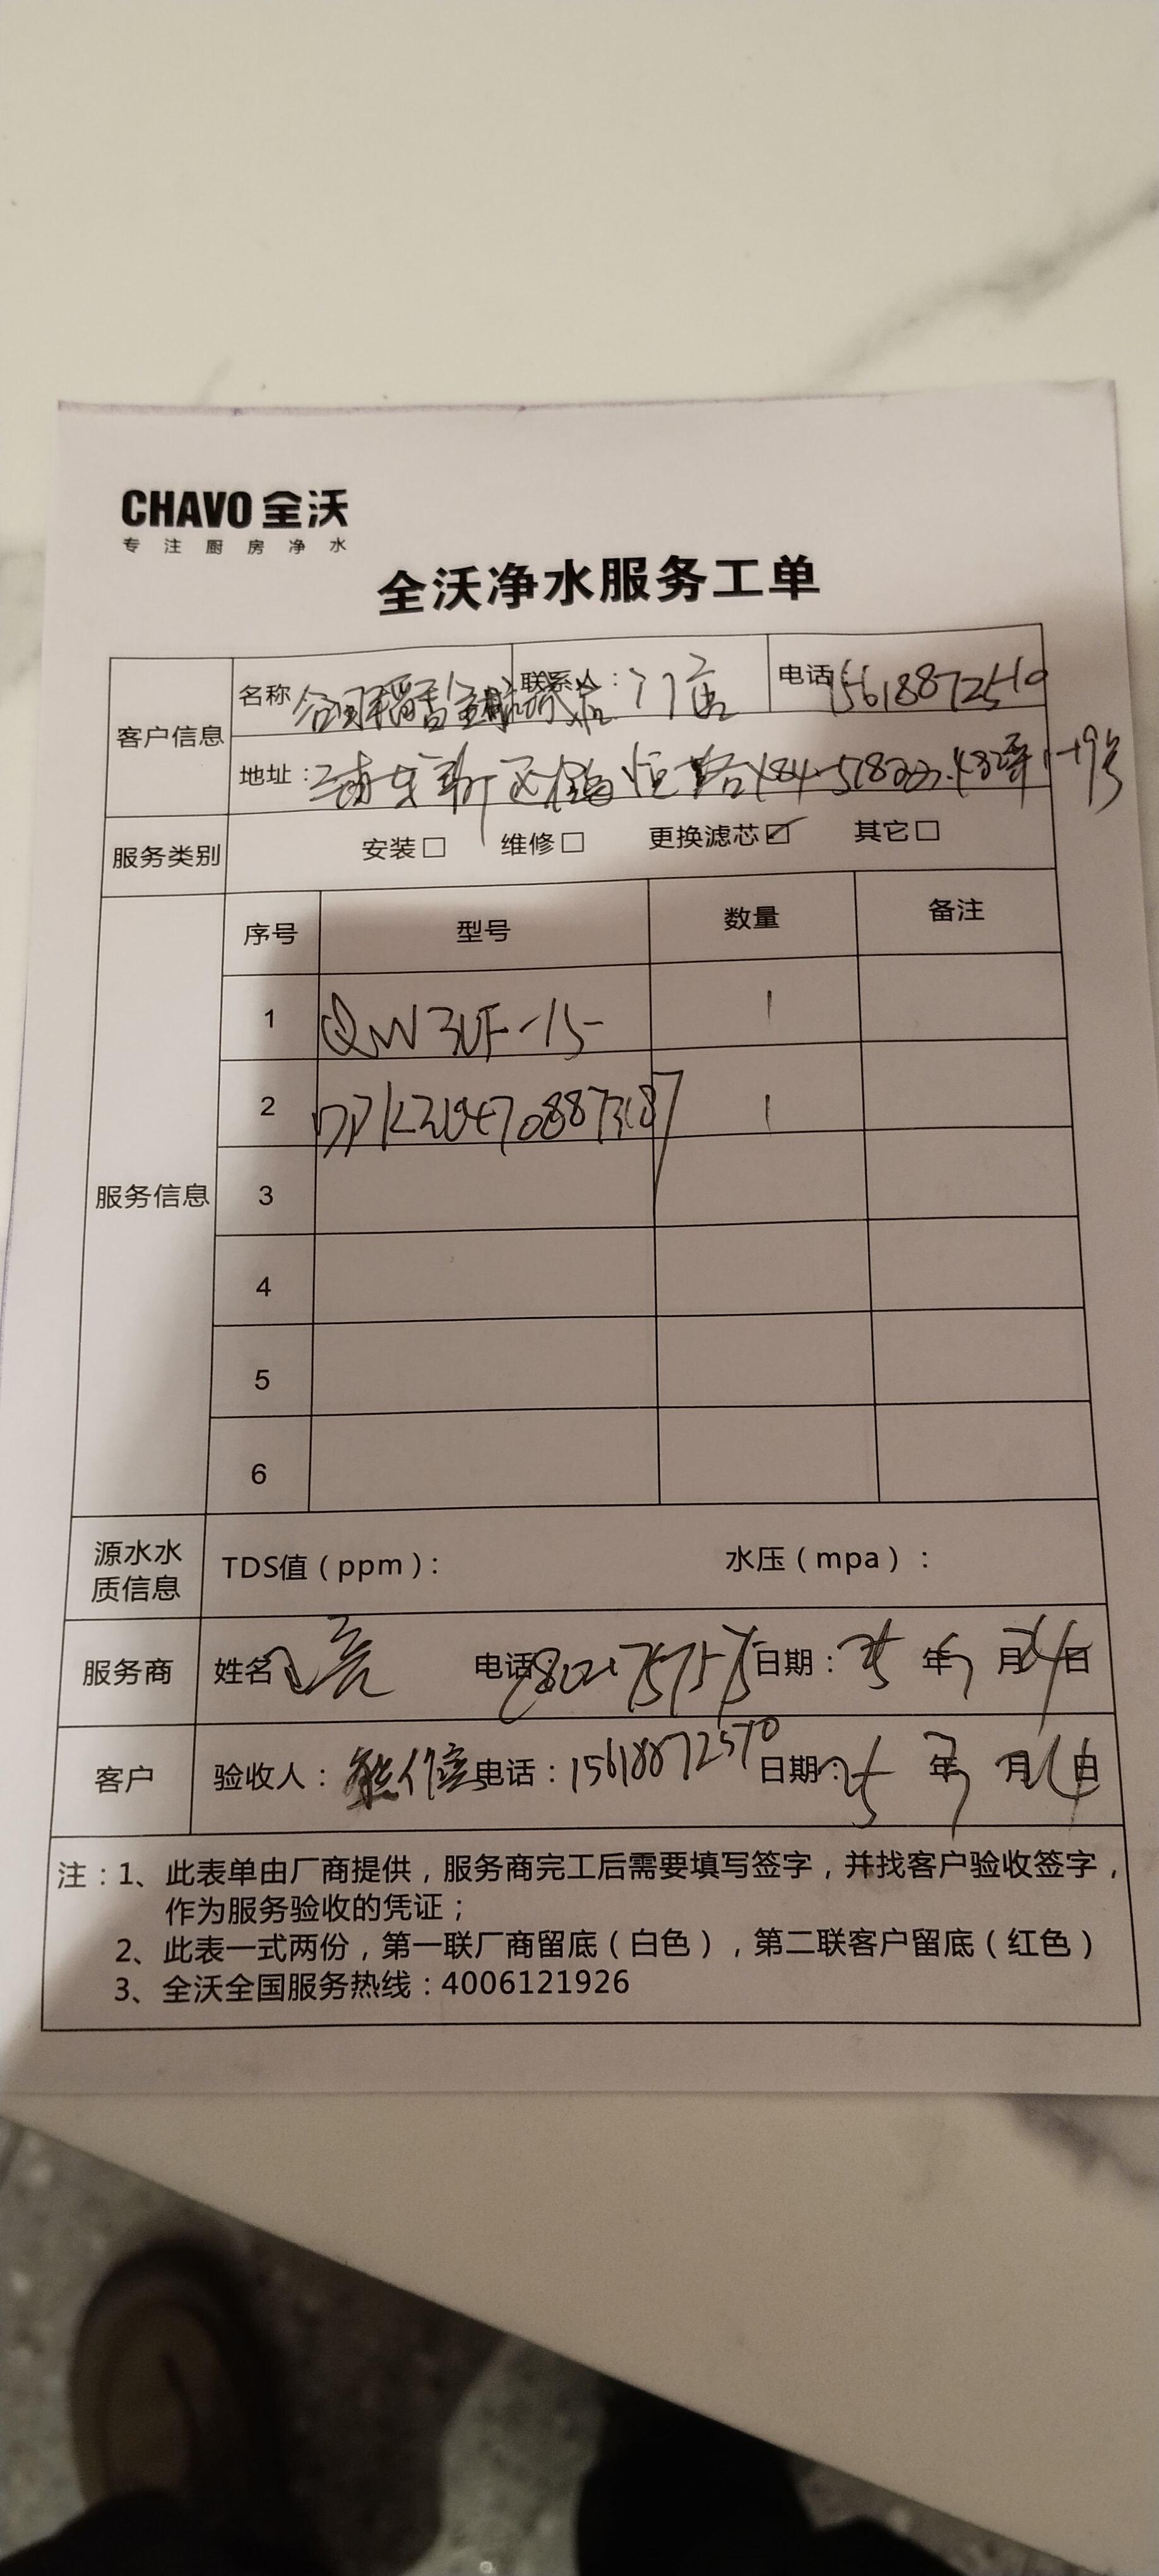 CHAVO 全沃
专注厨房净水
全沃净水服务工单
客户信息
名称 联系人：门店 电话 15618872510
地址：浦东新区 恒路484-518
服务类别 安装□ 维修□ 更换滤芯☑ 其它□
服务信息
序号 型号 数量 备注
1 QW3UF-15 1
2 1
3
4
5
6
源水水质信息 TDS值（ppm）： 水压（mpa）：
服务商 姓名 亮 电话 日期：25年 月 日
客户 验收人：熊 电话：15618872510 日期：25年 月 日
注：1、此表单由厂商提供，服务商完工后需要填写签字，并找客户验收签字，
作为服务验收的凭证；
2、此表一式两份，第一联厂商留底（白色），第二联客户留底（红色）
3、全沃全国服务热线：4006121926